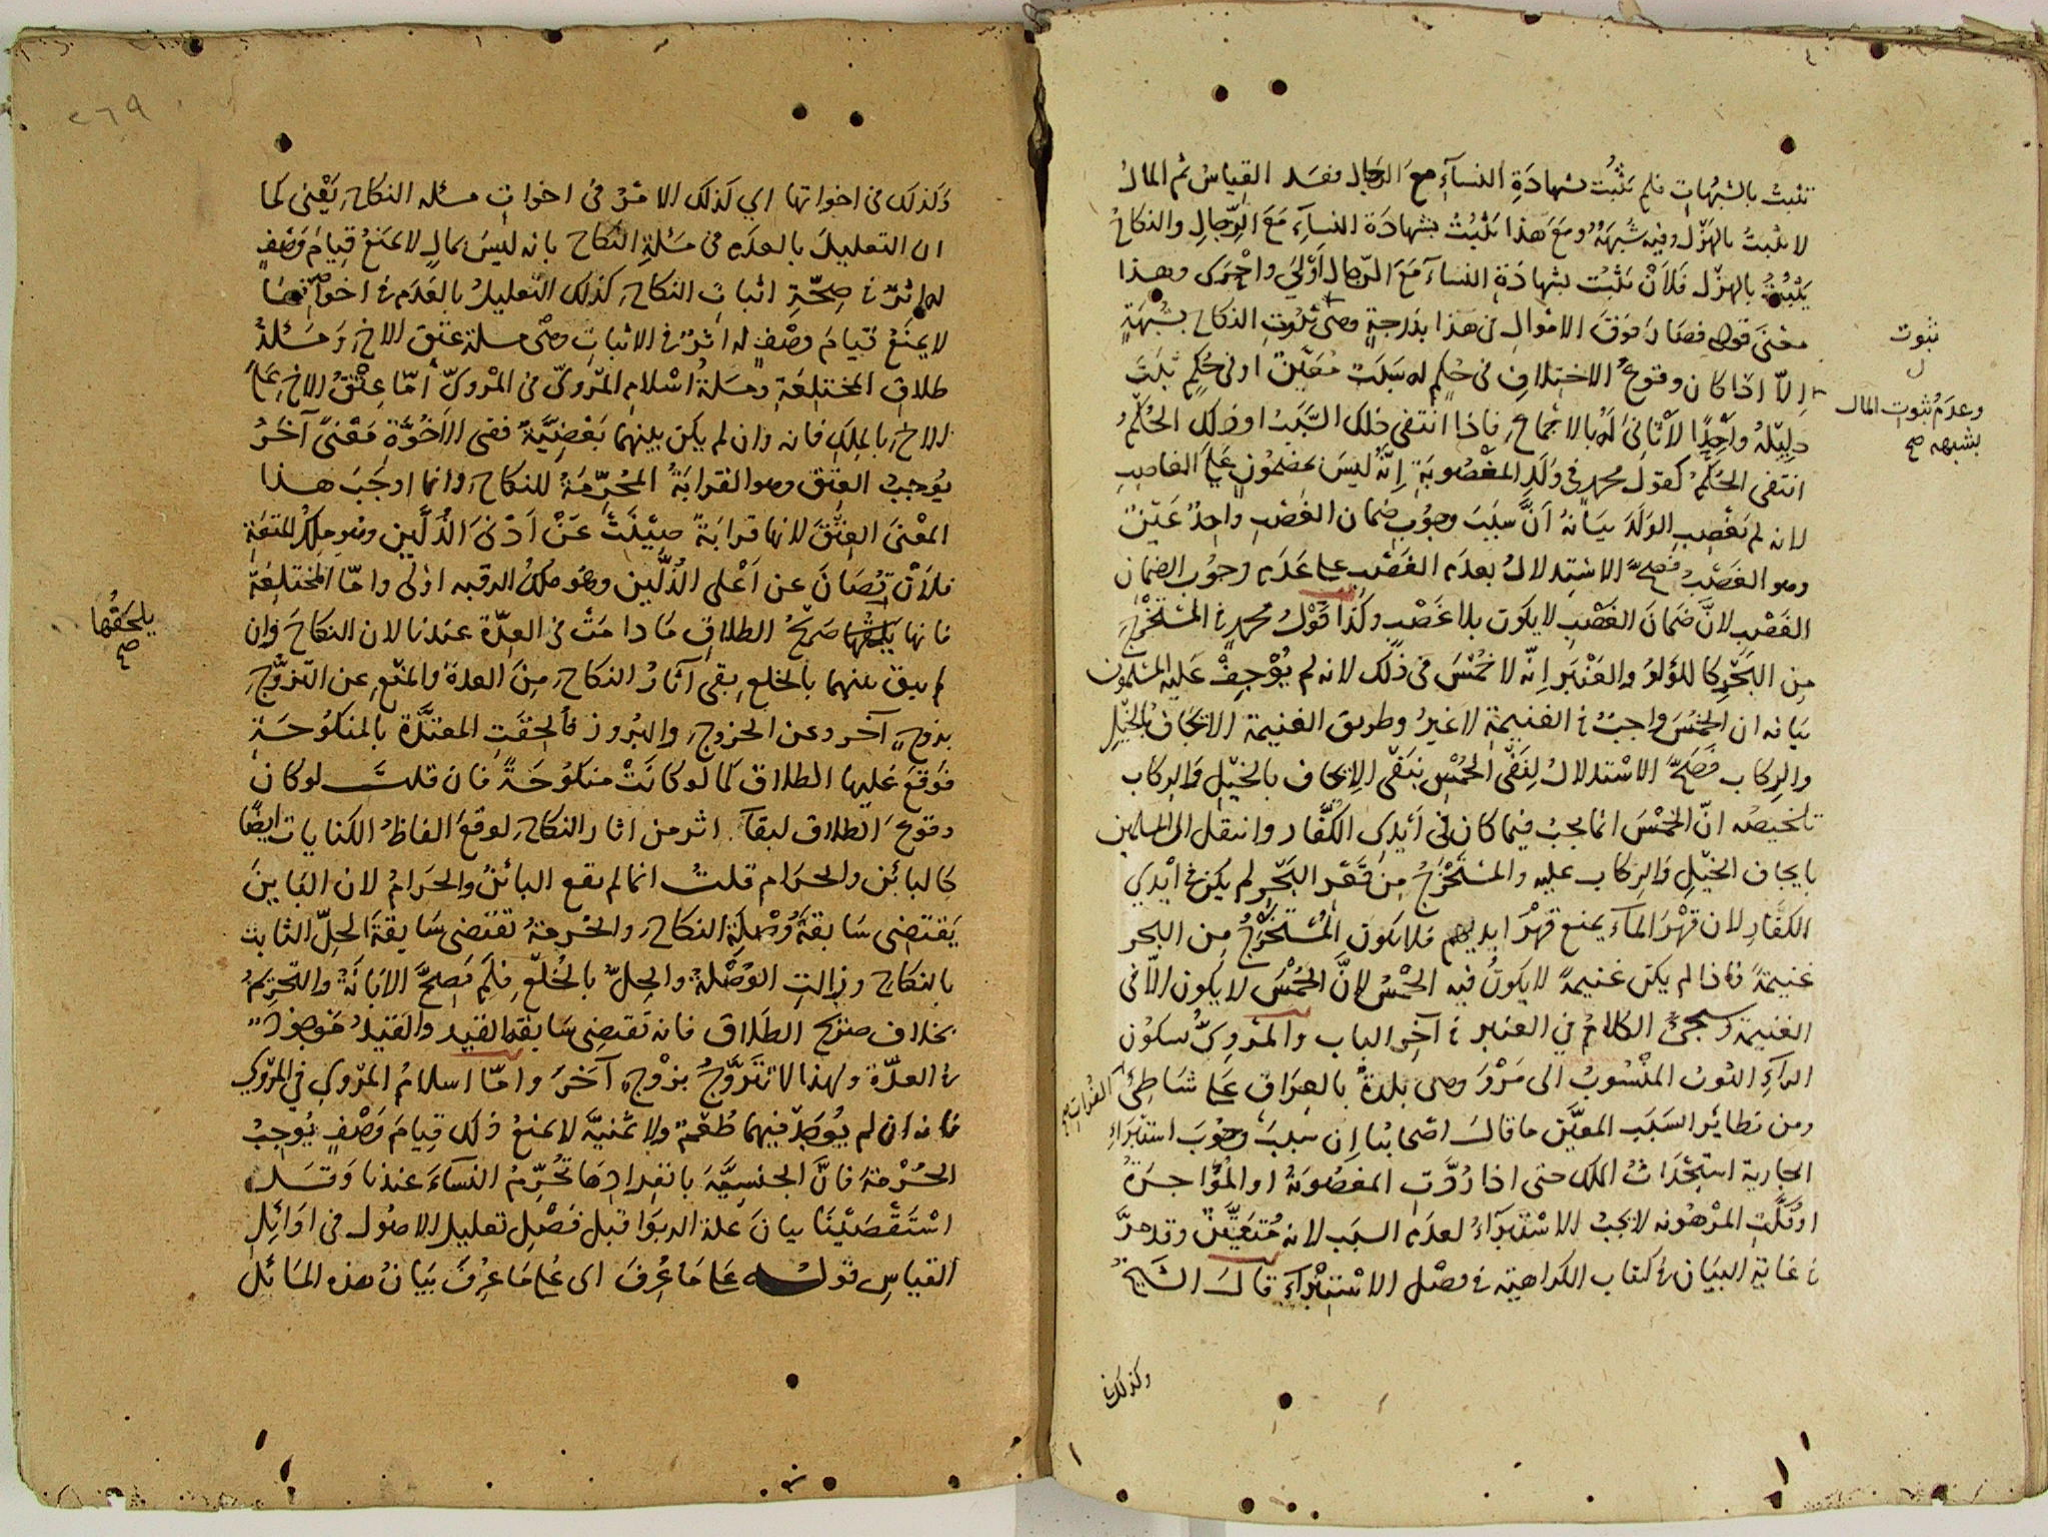 تثبت بالشبهات فلم تثبت بشهادة النسآء مع الرجال ففسد القياس ثم المال
لا يثبت بالهزل وفيه شبهة ومع هذا يثبت بشهادة النسآء مع الرجال والنكاح
يثبت بالهزل فلأن يثبت بشهادة النسآء مع الرجال أولى وأحرى وهذا
معنى قوله فصار فوق الاموال في هذا بدرجة وهى ثبوت النكاح بشبهة
ثبوت
ل
وعدم ثبوت المال
بشبهه صح
إلا اذا كان وقوع الاختلاف في حكم له سبب معين او في حكم ثبت
دليله واحدا لا ثاني له بالاجماع فاذا انتفى ذلك السبب او ذلك الحكم
انتفى الحكم كقول محمد في ولد المغصوبة إنه ليس بمضمون على الغاصب
لانه لم يغصب الولد بيانه أن سبب وجوب ضمان الغصب واحد عين
وهو الغصب فصح الاستدلال بعدم الغصب على عدم وجوب الضمان
الغصب لان ضمان الغصب لا يكون بلا غصب وكذا قول محمد في المستخرج
من البحر كاللؤلؤ والعنبر إنه لا خمس في ذلك لانه لم يوجف عليه المسلمون
بيانه ان الخمس واجب في الغنيمة لا غير وطريق الغنيمة الايجاف بالخيل
والركاب فصح الاستدلال لنفي الخمس بنفي الإيجاف بالخيل والركاب
تلخيصه ان الخمس انما يجب فيما كان في أيدي الكفار وانتقل الى المسلمين
بايجاف الخيل والركاب عليه والمستخرج من قعر البحر لم يكن في أيدي
الكفار لان قهر المآء يمنع قهر ايديهم فلا يكون المستخرج من البحر
غنيمة فاذا لم يكن غنيمة لا يكون فيه الخمس لأن الخمس لا يكون الا في
الغنيمة وسيجئ الكلام في العنبر في آخر الباب والمروي بسكون
الرآء الثوب المنسوب الى مرو وهى بلدة بالعراق على شاطئ
الفرات صح
ومن نظائر السبب المعين ما قال اصحابنا إن سبب وجوب استبراء
الجارية استحداث الملك حتى اذا ردت المغصوبة او المؤاجرة
او فكت المرهونه لا يجب الاستبراء لعدم السبب لانه متعين وقد مر
في غاية البيان في كتاب الكراهية في فصل الاستبرآء قال الشيخ
وكذلك في
٢٦٩
وكذلك في اخواتها اي كذلك الامر في اخوات مسئلة النكاح يعني كما
ان التعليل بالعدم في مسئلة النكاح بانه ليس بمال لا يمنع قيام وصف
له اثر في صحة اثبات النكاح كذلك التعليل بالعدم في اخواتها
لا يمنع قيام وصف له اثر في الاثبات وهى مسئلة عتق الاخ ومسئلة
طلاق المختلعة ومسئلة اسلام المروي في المروي أما عتق الاخ على
الاخ بالملك فانه وان لم يكن بينهما بعضية ففي الأخوة معنى آخر
يوجب العتق وهو القرابة المحرمة للنكاح وانما اوجب هذا
المعنى العتق لانها قرابة صينت عن أدنى الذلين وهو ملك المتعة
فلأن تصان عن أعلى الذلين وهو ملك الرقبه اولى واما المختلعة
فانها يلحقها صريح الطلاق ما دامت في العدة عندنا لان النكاح وان
يلحقها
صح
لم يبق بينهما بالخلع بقى آثار النكاح من العدة والمنع عن التزوج
بزوج آخر وعن الخروج والبروز فألحقت المعتدة بالمنكوحة
فوقع عليها الطلاق كما لو كانت منكوحة فان قلت لو كان
وقوع الطلاق لبقآء اثر من اثار النكاح لوقع الفاظ الكنايات ايضا
كالبائن والحرام قلت انما لم يقع البائن والحرام لان الباين
يقتضى سابقة وصلة النكاح والحرمة تقتضى سابقة الحل الثابت
بالنكاح وزالت الوصلة والحل بالخلع فلم تصح الابانة والتحريم
بخلاف صريح الطلاق فانه تقتضى سابقة القيد والقيد موجود
في العدة ولهذا لا تتزوج بزوج آخر واما اسلام المروي في المروي
فانه ان لم يوجد فيهما طعم ولا ثمنية لا يمنع ذلك قيام وصف يوجب
الحرمة فان الجنسية بانفرادها تحرم النسآء عندنا وقد
استقصينا بيان علة الربوا قبل فصل تعليل الاصول في اوائل
القياس قوله على ما عرف اى على ما عرف بيان هذه المسائل